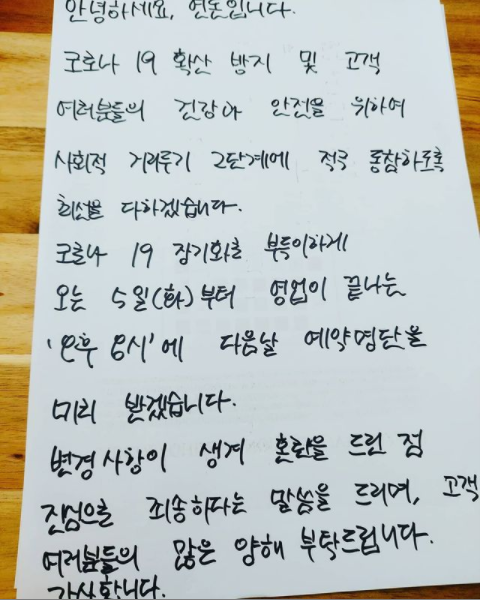 안녕하세요, 연돈입니다.
코로나 19 확산 방지 및 고객
여러분들의 건강과 안전을 위하여
사회적 거리두기 2단계에 적극 동참하도록
최선을 다하겠습니다.
코로나 19 장기화로 부득이하게
오는 5일(화)부터 영업이 끝나는
'오후 8시'에 다음날 예약명단을
미리 받겠습니다.
변경사항이 생겨 혼란을 드린 점
진심으로 죄송하다는 말씀을 드리며, 고객
여러분들의 많은 양해 부탁드립니다.
감사합니다.